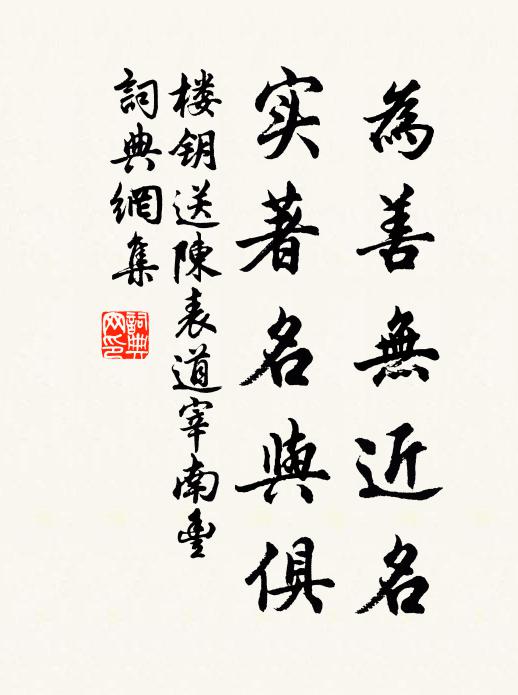 為善無近名
实著名與俱
楼钥送陳表道宰南豐
詞典網集
詞典网印